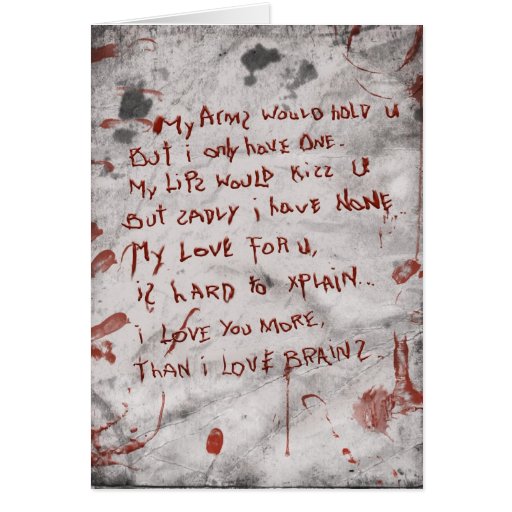 My Arms would hold u
But i only have ONE.
My Lips would kiss u
But sadly i have NONE
My Love for u,
is hard to xplain...
i Love you more,
than i Love Brains.